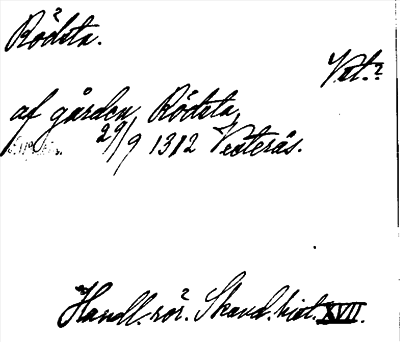 Rödsta.
Vst.?
af gården Rödsta,
29/9 1312 Vesterås.
Handl. rör. Skand. hist. XVII.